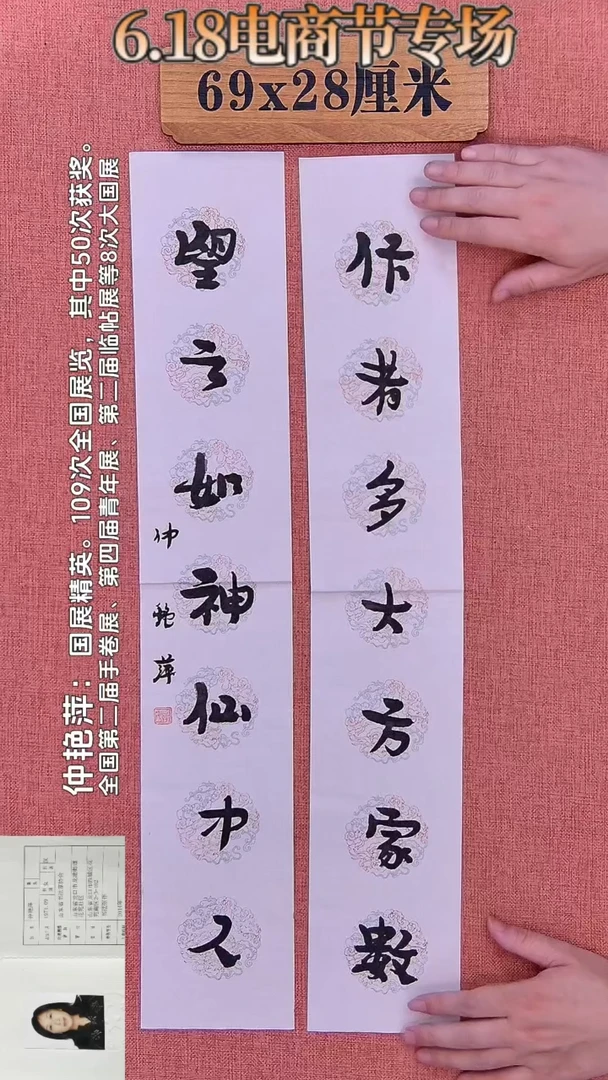 6.18电商节专场
69x28厘米
仲艳萍：国展精英。109次全国展览，其中50次获奖。
全国第二届手卷展、第四届青年展、第二届临帖展等8次大国展
作者多大方家數
望之如神仙中人
仲艳萍